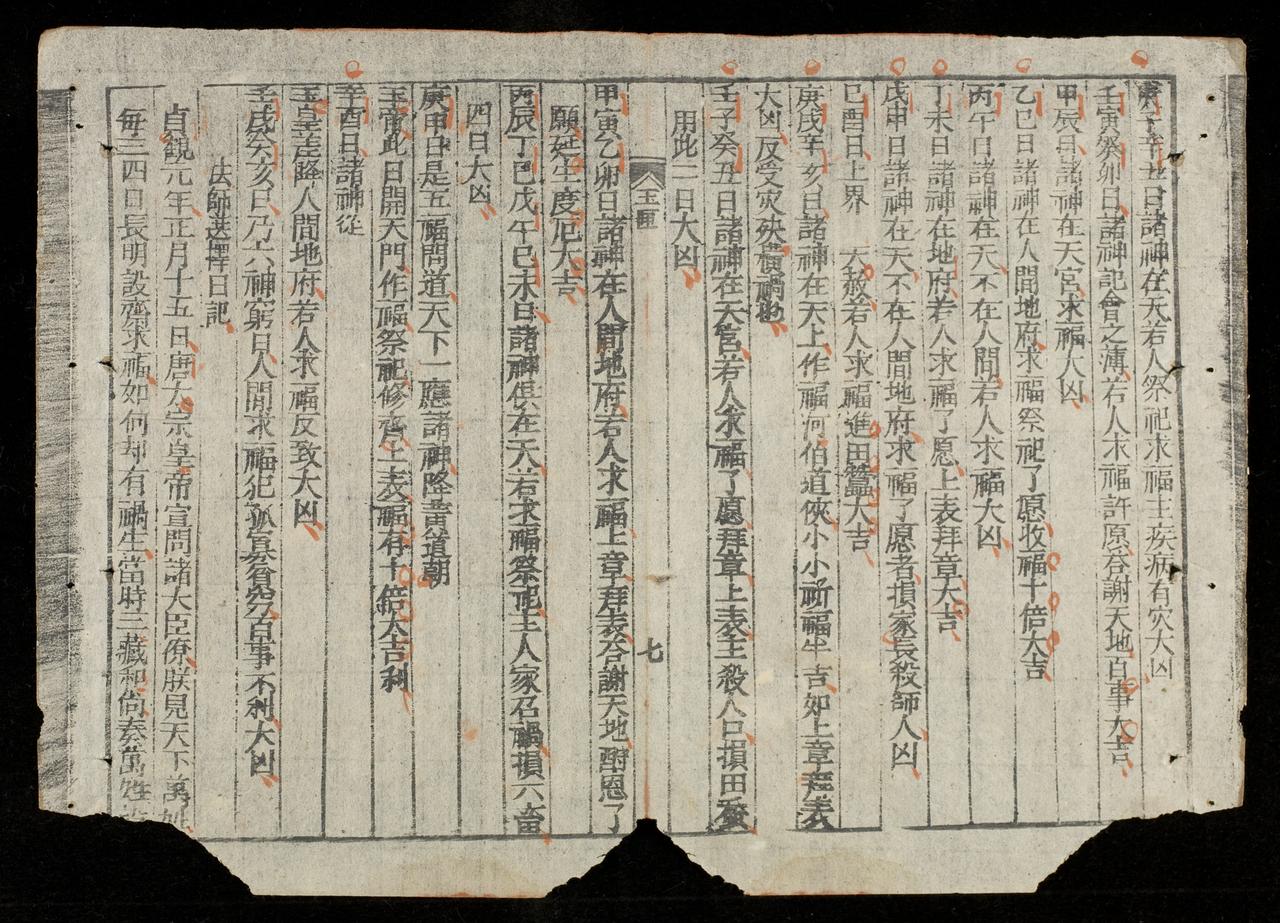 庚子辛丑日諸神在天若人祭祀求福主疾病有穴大凶
壬寅癸卯日諸神記會之薄若人求福許原答謝天地百事大吉
甲辰日諸神在天宮求福大凶
乙巳日諸神在人間地府求福祭祀了愿收福十倍大吉
丙午日諸神在天不在人間若人求福大凶
丁未日諸神在地府若人求福了愿上表拜章大吉
戊申日諸神在天不在人間地府求福了愿者損家長殺師人凶
己酉日上界 大赦若人求福進田蠶大吉
庚戌辛亥日諸神在天上作福河伯道俠小小祈福半吉如上章拜表
大凶反受灾殃橫禍也
壬子癸丑日諸神在天宮若人求福了愿拜章上表主殺人口損田蚕
用此一日大凶
玉匣
七
甲寅乙卯日諸神在人間地府若人求福上章拜表答謝天地酧恩了
願延生度厄大吉
丙辰丁巳戊午己未日諸神俱在天若求福祭祀主人家召禍損六畜
四日大凶
庚申日是五福問道天下一應諸神降黃道朝
玉帝此日開天門作福祭祀修齋上表福有十倍大吉利
辛酉日諸神從
玉皇差降人間地府若人求福反致大凶
壬戌癸亥日乃六神窮日人間求福犯孤寡省穷百事不利大凶
法師選擇日記
貞觀元年正月十五日唐太宗皇帝宣問諸大臣僚朕見天下萬姓
每三四日長明設齋求福如何却有禍生當時三藏和尙奏萬姓